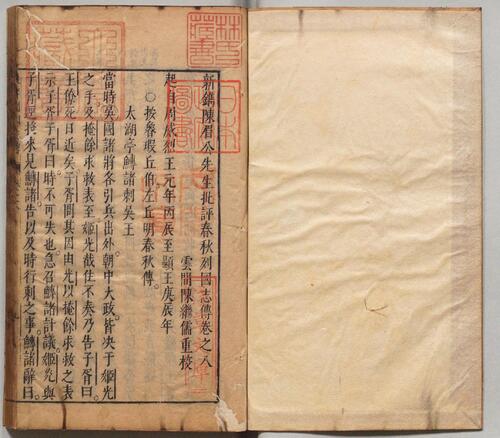 新鐫陳眉公先生批評春秋列國志傳卷之八
雲間陳繼儒重校
起自周威烈王元年丙辰至顯王庚辰年
○按魯瑕丘伯左丘明春秋傳
太湖亭鱄諸刺吳王
當時吳國諸將各引兵出外。朝中大政。皆决于姬光
之手。及掩餘求救表至。姬光截住不奏。乃告子胥曰。
王僚死日近矣。子胥問其因由。光以掩餘求救之表
示子胥。子胥曰。時不可失也。急召鱄諸計議。姬光與
子胥逕搀來見鱄諸。告以及時行刺之事。鱄諸辭曰。
林氏
藏書
日本
圖書